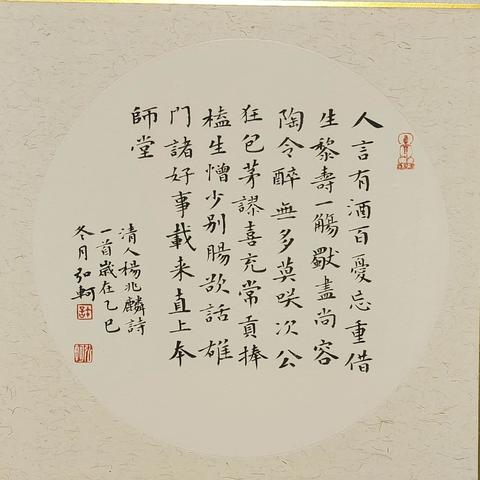 人言有酒百憂忘重借
生黎壽一觴盡尚容
陶令醉無多莫咲次公
狂包茅謬喜充常貢捧
榼生憎少别腸欲話雄
門諸好事載来直上本
師堂
清人楊兆麟詩
一首歲在乙巳
冬月弘軻